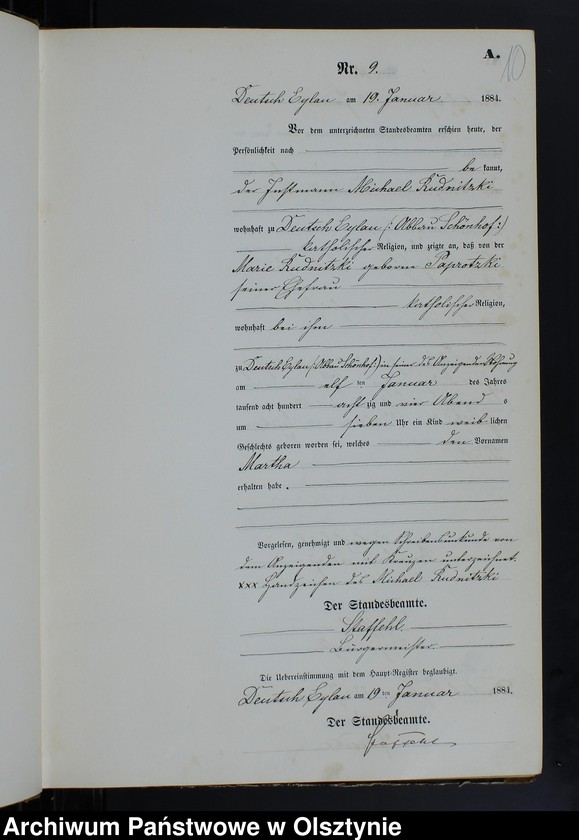 A.
10
Nr. 9.
Deutsch Eylau am 19. Januar 1884.
Vor dem unterzeichneten Standesbeamten erschien heute, der
Persönlichkeit nach
be kannt,
der Instmann Michael Rudnitzki
wohnhaft zu Deutsch Eylau /: Abbau Schönhof :/
katholischer Religion, und zeigte an, daß von der
Marie Rudnitzki geborne Paprotzki
seiner Ehefrau
katholischer Religion,
wohnhaft bei ihm
zu Deutsch Eylau /: Abbau Schönhof :/ in seiner des Anzeigenden Wohnung
am elf ten Januar des Jahres
tausend acht hundert acht zig und vier Abend s
um sieben Uhr ein Kind weib lichen
Geschlechts geboren worden sei, welches den Vornamen
Martha
erhalten habe.
Vorgelesen, genehmigt und wegen Schreibensunkunde von
dem Anzeigenden mit Kreuzen unterzeichnet.
xxx Handzeichen des Michael Rudnitzki
Der Standesbeamte.
Staffehl
Bürgermeister
Die Uebereinstimmung mit dem Haupt-Register beglaubigt.
Deutsch Eylau am 19 ten Januar 1884.
Der Standesbeamte.
Staffehl
Archiwum Państwowe w Olsztynie